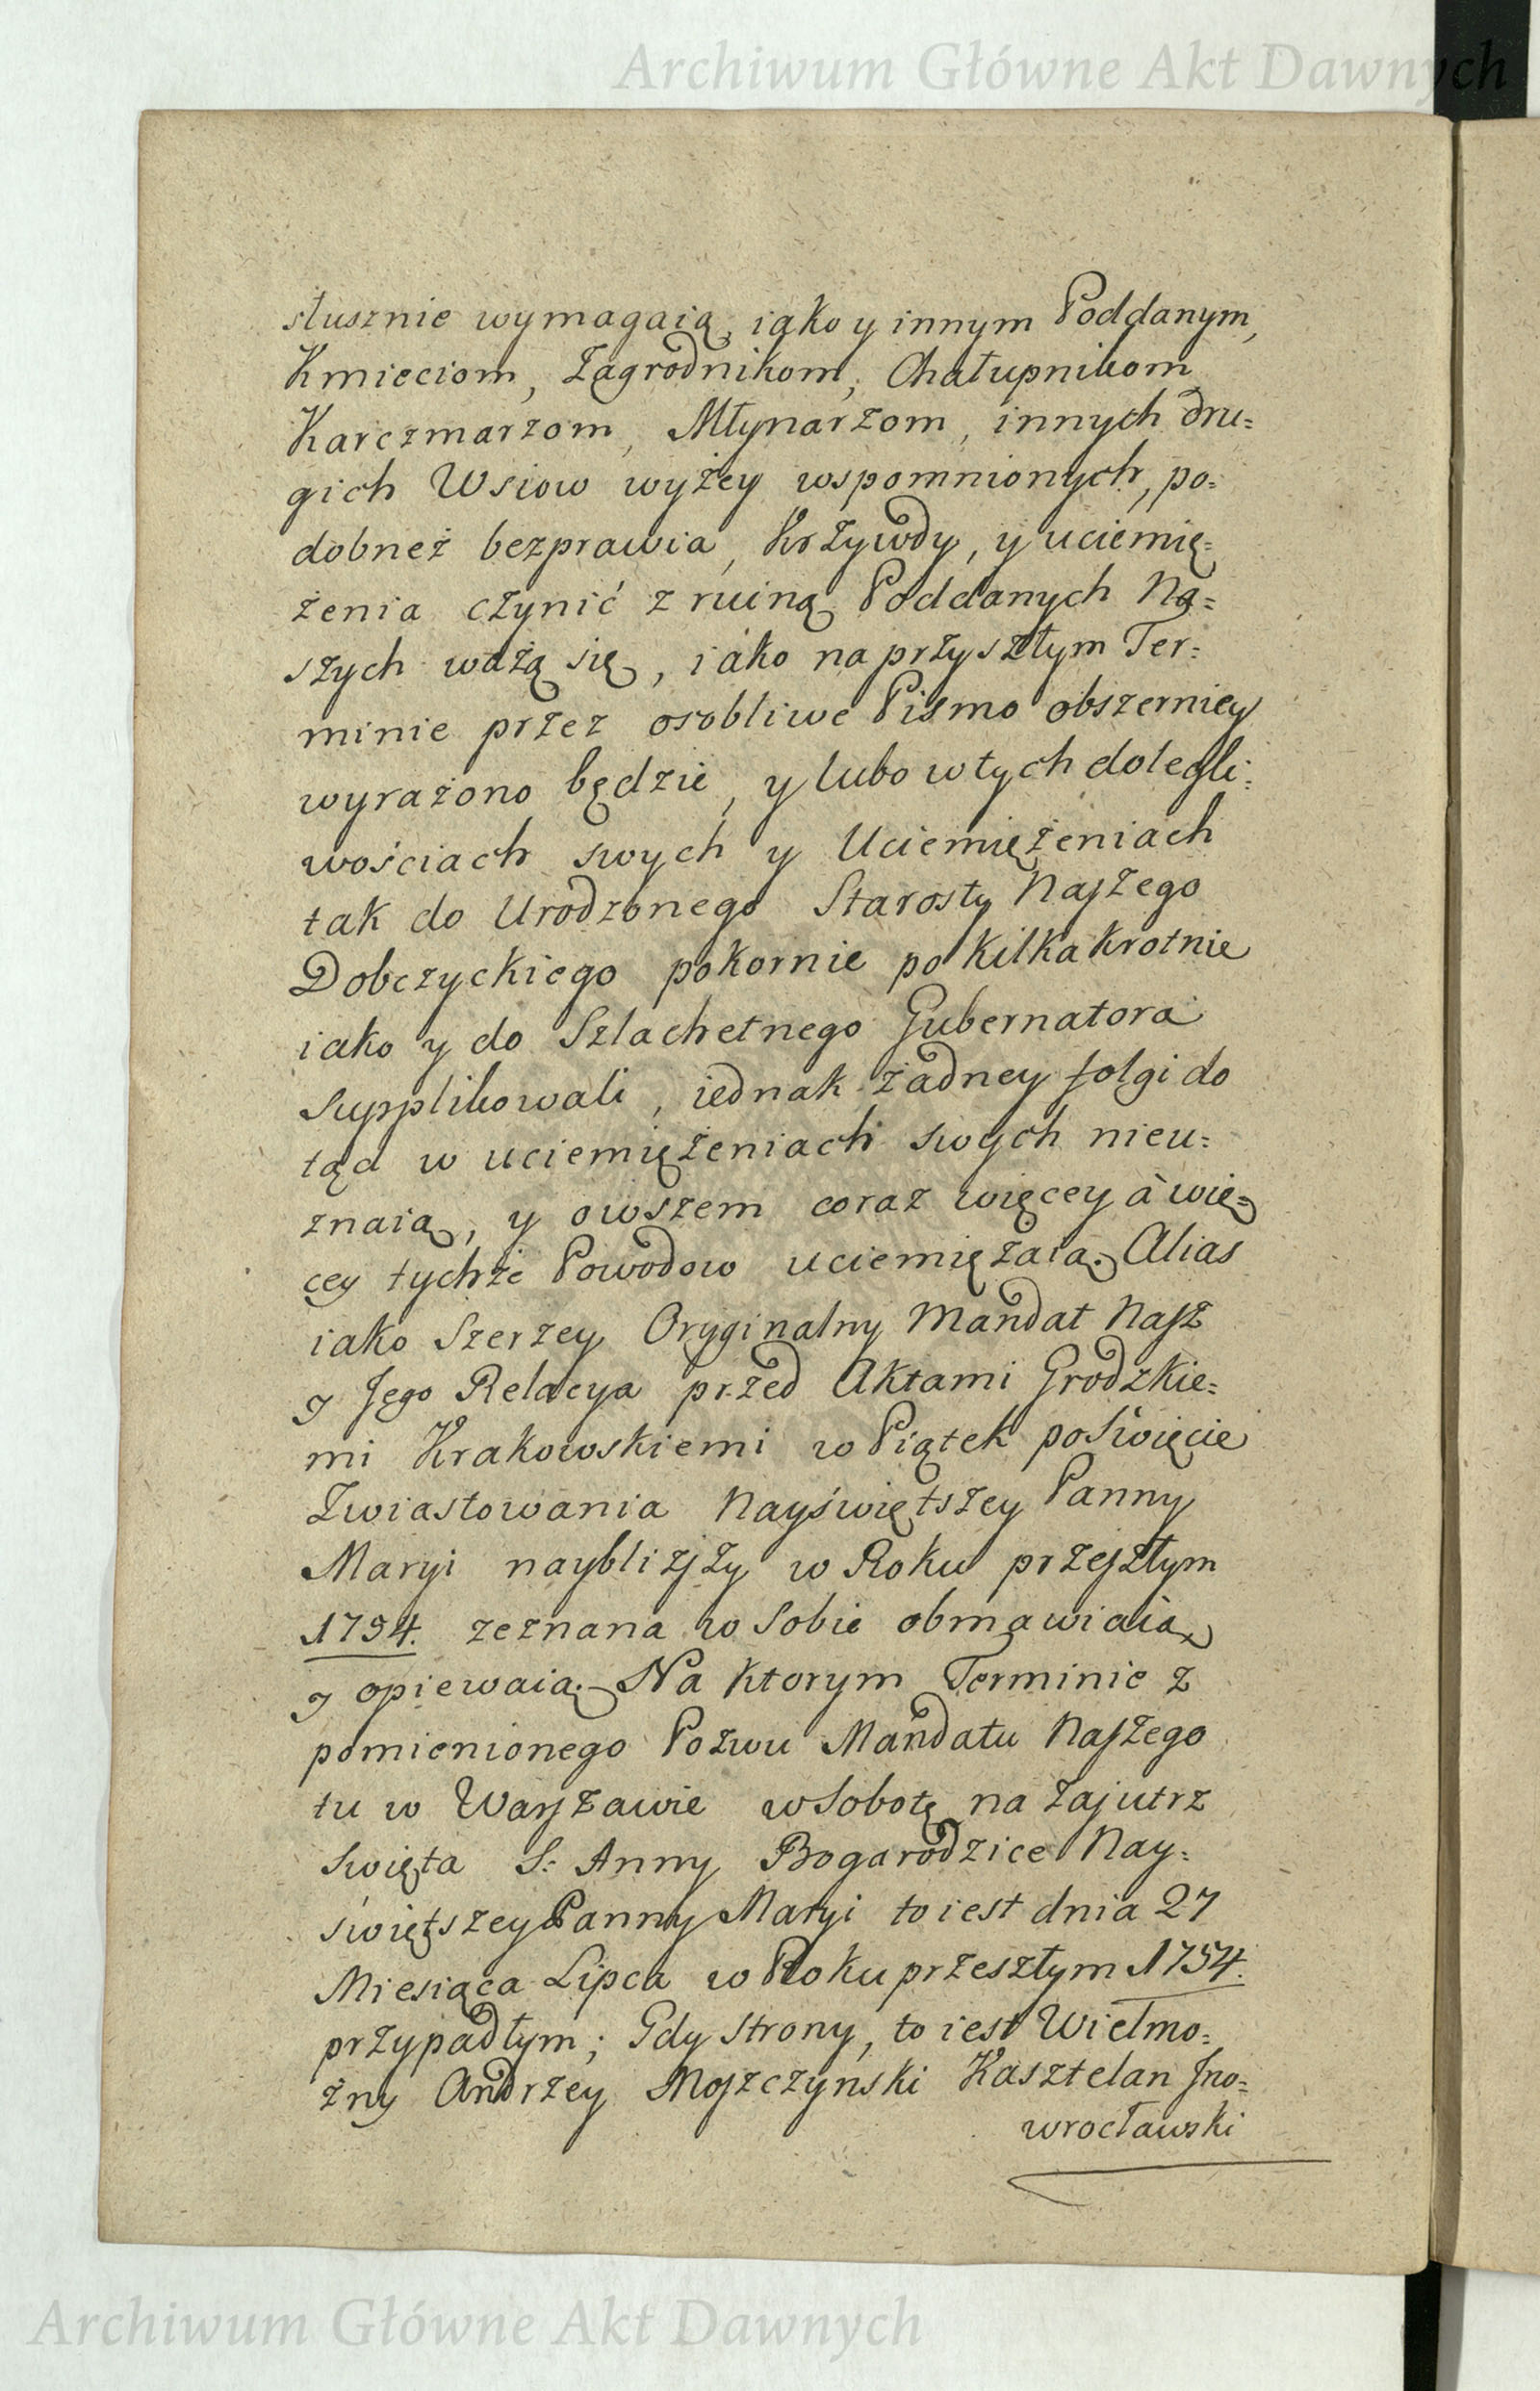 Archiwum Główne Akt Dawnych
słusznie wymagaią, iako y innym Poddanym,
Kmieciom, Zagrodnikom, Chałupnikom
Karczmarzom, Młynarzom, innych dru=
gich Wsiow wyżey wspomnionych, po=
dobneż bezprawia, Krzywdy, y uciemię=
żenia czynić z ruiną Poddanych Na=
szych ważą się, iako na przyszłym Ter=
minie przez osobliwe Pismo obszerniey
wyrażono będzie, y lubo w tych dolegli=
wościach swych y Uciemiężeniach
tak do Urodzonego Starosty Naszego
Dobczyckiego pokornie po kilkakrotnie
iako y do Szlachetnego Gubernatora
supplikowali, iednak żadney folgi do
tąd w uciemiężeniach swych nieu=
znaią, y owszem coraz więcey à wię=
cey tychże Powodow uciemiężaią. Alias
iako Szerzey Oryginalny Mandat Nasz
y Jego Relacya przed Aktami Grodzkie=
mi Krakowskiemi w Piątek po Swięcie
Zwiastowania Nayświętszey Panny
Maryi naybliższy w Roku przeszłym
1754. zeznana w Sobie obmawiaią
y opiewaią. Na ktorym Terminie z
pomienionego Pozwu Mandatu Naszego
tu w Warszawie w Sobotę na zajutrz
Swięta S: Anny Bogarodzice Nay=
świętszey Panny Maryi to iest dnia 27
Miesiąca Lipca w Roku przeszłym 1754.
przypadłym; Gdy Strony, to iest Wielmo=
żny Andrzey Moszczynski Kasztelan Jno=
wrocławski
Archiwum Główne Akt Dawnych